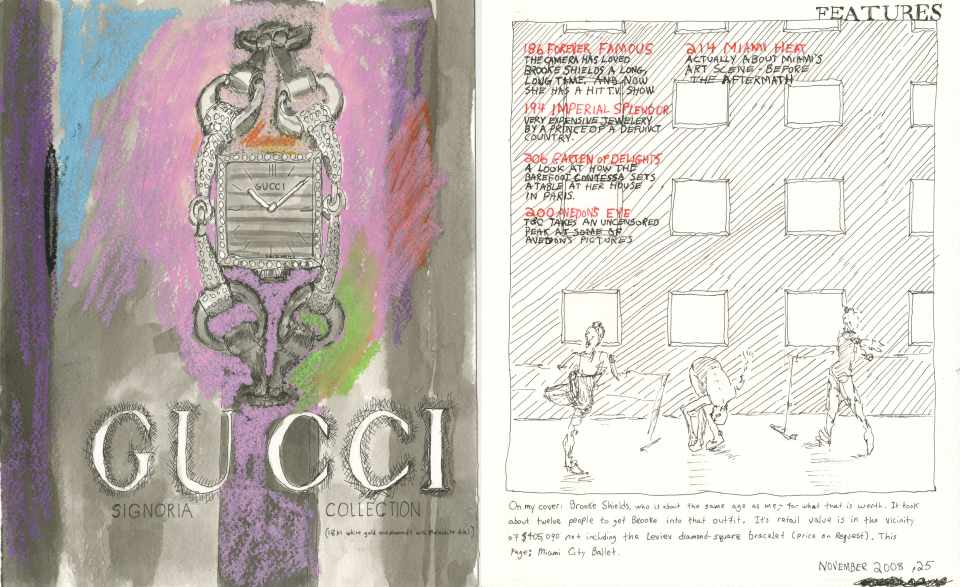 GUCCI
GUCCI
SIGNORIA COLLECTION
(18kt white gold and diamonds with
FEATURES
186 FOREVER FAMOUS
THE CAMERA HAS LOVED
BROOKE SHIELDS A LONG,
LONG TAME, AND NOW
SHE HAS A HIT T.V. SHOW
194 IMPERIAL SPLENDOUR
VERY EXPENSIVE JEWELERY
BY A PRINCE OF A DEFUNCT
COUNTRY.
206 GARTEN OF DELIGHTS
A LOOK AT HOW THE
BAREFOOT CONTESSA SETS
A TABLE AT HER HOUSE
IN PARIS.
200 AVEDON'S EYE
T&C TAKES AN UNCENSORED
PEAK AT SOME OF
AVEDON'S PICTURES
214 MIAMI HEAT
ACTUALLY ABOUT MIAMI'S
ART SCENE - BEFORE
THE AFTERMATH
On my cover: Brooke Shields, who is about the same age as me, for what that is worth. It took
about twelve people to get Brooke into that outfit. It's retail value is in the vicinity
of $405,090 not including the Leviev diamond-square bracelet (price on Request). This
page; Miami City Ballet.
NOVEMBER 2008 , 25